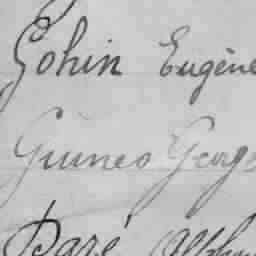 Gohin Eugène
Guineo George
Paré Alphon